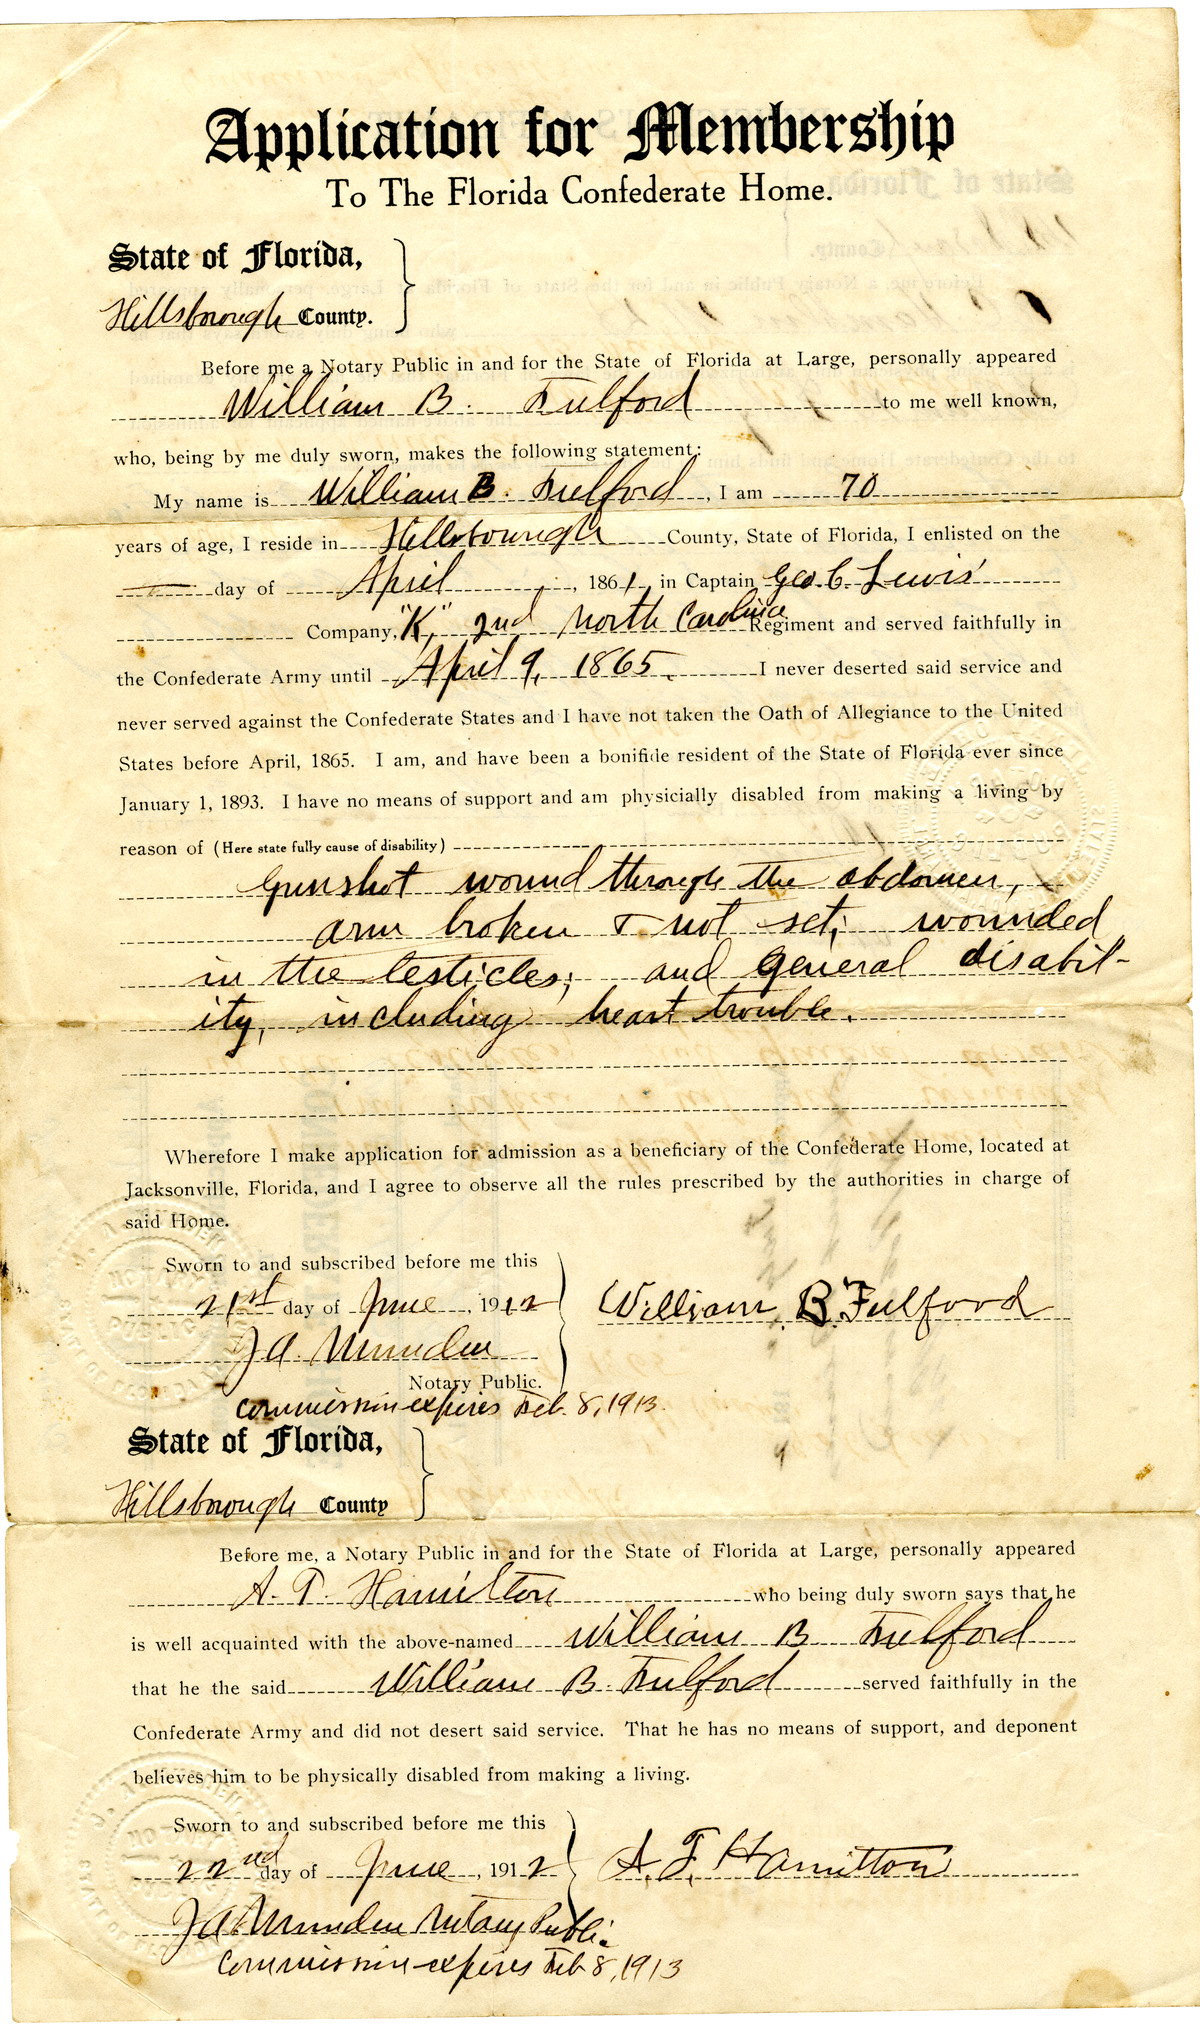 Application for Membership
To The Florida Confederate Home.
State of Florida,
Hillsborough County.
Before me a Notary Public in and for the State of Florida at Large, personally appeared
William B. Fulford to me well known,
who, being by me duly sworn, makes the following statement:
My name is William B. Fulford, I am 70
years of age, I reside in Hillsborough County, State of Florida, I enlisted on the
— day of April, 1861, in Captain Geo C. Lewis'
Company, "K," 2nd North Carolina Regiment and served faithfully in
the Confederate Army until April 9, 1865. I never deserted said service and
never served against the Confederate States and I have not taken the Oath of Allegiance to the United
States before April, 1865. I am, and have been a bonifide resident of the State of Florida ever since
January 1, 1893. I have no means of support and am physicially disabled from making a living by
reason of (Here state fully cause of disability)
Gunshot wound through the abdomen,
arm broken & not set; wounded
in the testicles; and general disabil-
ity, including heart trouble.
Wherefore I make application for admission as a beneficiary of the Confederate Home, located at
Jacksonville, Florida, and I agree to observe all the rules prescribed by the authorities in charge of
said Home.
Sworn to and subscribed before me this
21st day of June, 1912
William B. Fulford
J A. Munden
Notary Public.
Commission expires Feb. 8, 1913.
State of Florida,
Hillsborough County
Before me, a Notary Public in and for the State of Florida at Large, personally appeared
A. T. Hamilton who being duly sworn says that he
is well acquainted with the above-named William B Fulford
that he the said William B. Fulford served faithfully in the
Confederate Army and did not desert said service. That he has no means of support, and deponent
believes him to be physically disabled from making a living.
Sworn to and subscribed before me this
22nd day of June, 1912
A. T. Hamilton
J A Munden Notary Public
Commission expires Feb 8, 1913